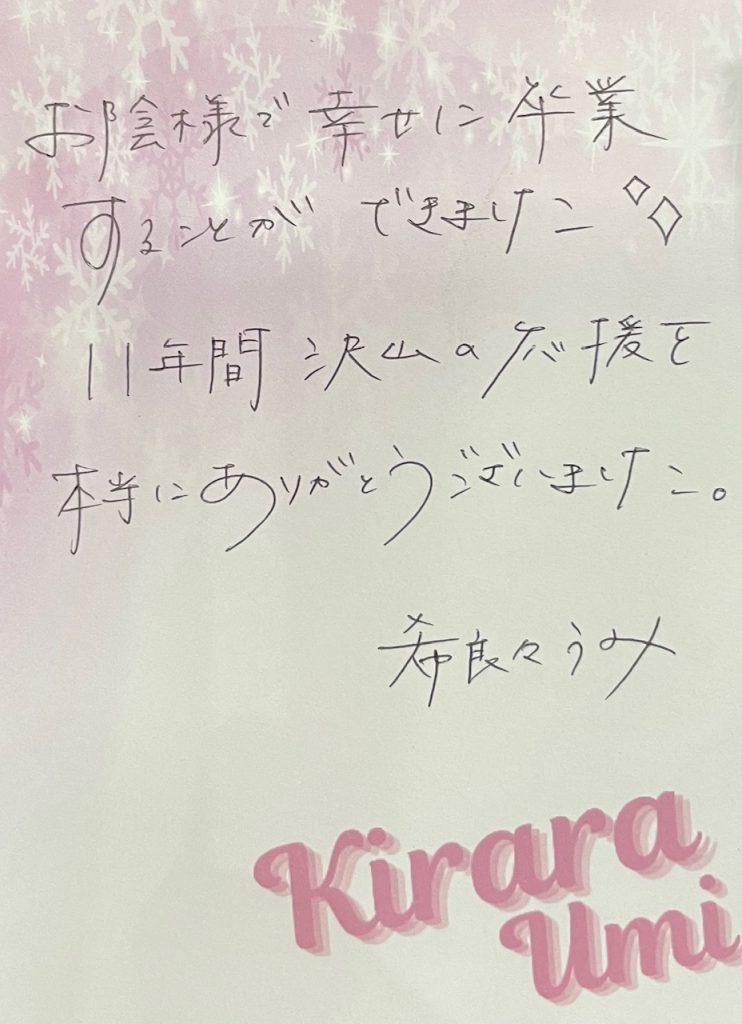 お陰様で幸せに卒業
することができました
11年間 沢山の応援を
本当にありがとうございました。
希良々うみ
Kirara
Umi